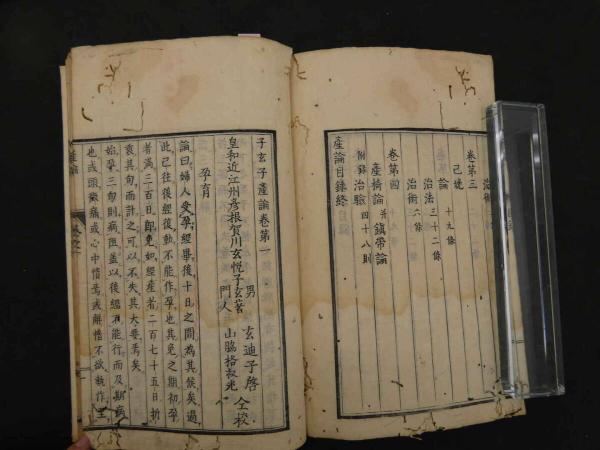 治術
卷第三
已娩
論 十九條
治法 三十二條
治術 六條
卷第四
產椅論 并 鎮帶論
附錄 治驗 四十八則
產論目錄終
子玄子產論卷第一
皇和近江州彥根賀川玄悅子玄著
男 玄迪子啓
門人 山脇格叔光 仝校
孕育
論曰婦人受孕經畢後十日之間為其候矣過
此已往後經後孰不能作孕也其免之期初孕
者滿三百日即免如經產者二百七十五日折
衷其旬而計之可以不失其大要焉矣
始孕三旬則病阻蓋以後經不能行而及期病
也或頭微痛或心中憒憒或解惰不欲執作
產論